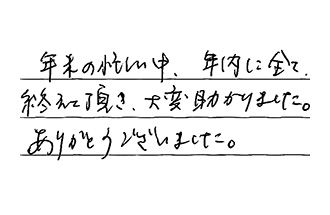 年末の忙しい中、年内に全て、
終えて頂き、大変助かりました。
ありがとうございました。